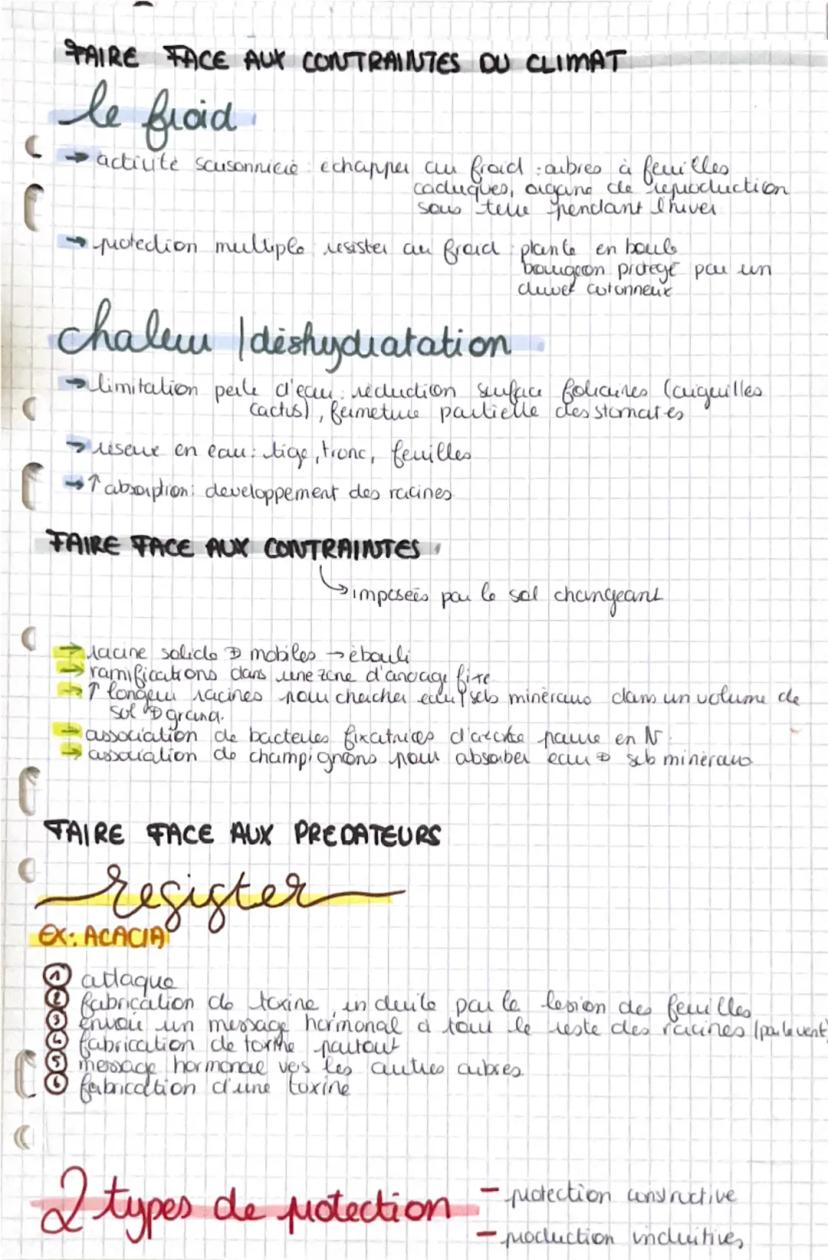 FAIRE FACE AUX CONTRAINTES DU CLIMAT
le froid
→ activité saisonnière : echapper au froid : arbres à feuilles
caduques, organe de reproduction
sous terre pendant l'hiver
→ protection multiple : resister au froid : plante en boule
bourgeon protegé par un
duvet cotonneux
chaleur / déshydratation
→ limitation perte d'eau : réduction surface foliaires (aiguilles
cactus), fermeture partielle des stomates
→ réserve en eau : tige, tronc, feuilles
→ ↑ absorption : developpement des racines
FAIRE FACE AUX CONTRAINTES
↳ imposées par le sol changeant
→ racine solide mobiles → ébouli
→ ramifications dans une zone d'ancrage fixe
→ ↑ longeur racines pour chercher eau / sels minéraux dans un volume de
sol grand.
→ association de bacteries fixatrices d'azote pauvre en N
→ association de champignons pour absorber eau sels minéraux
FAIRE FACE AUX PREDATEURS
resister
EX: ACACIA
① attaque
② fabrication de toxine, induite par la lesion des feuilles
③ envoie un message hormonal à tout le reste des racines (par le vent)
④ fabrication de toxine partout
⑤ message hormonal vers les autres arbres
⑥ fabrication d'une toxine
2 types de protection
- protection constructive
- production induitives